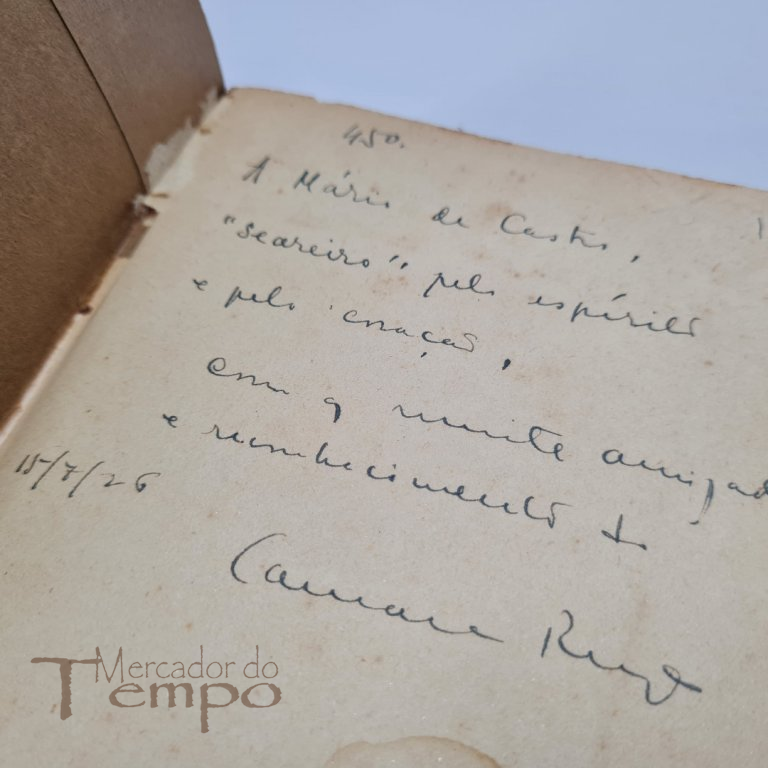 450.
A Mário de Castro,
"seareiro", pelo espírito
e pelo coração,
com a muita amizad
e reconhecimento do
15/7/26
Camara Reys
Mercador do
Tempo